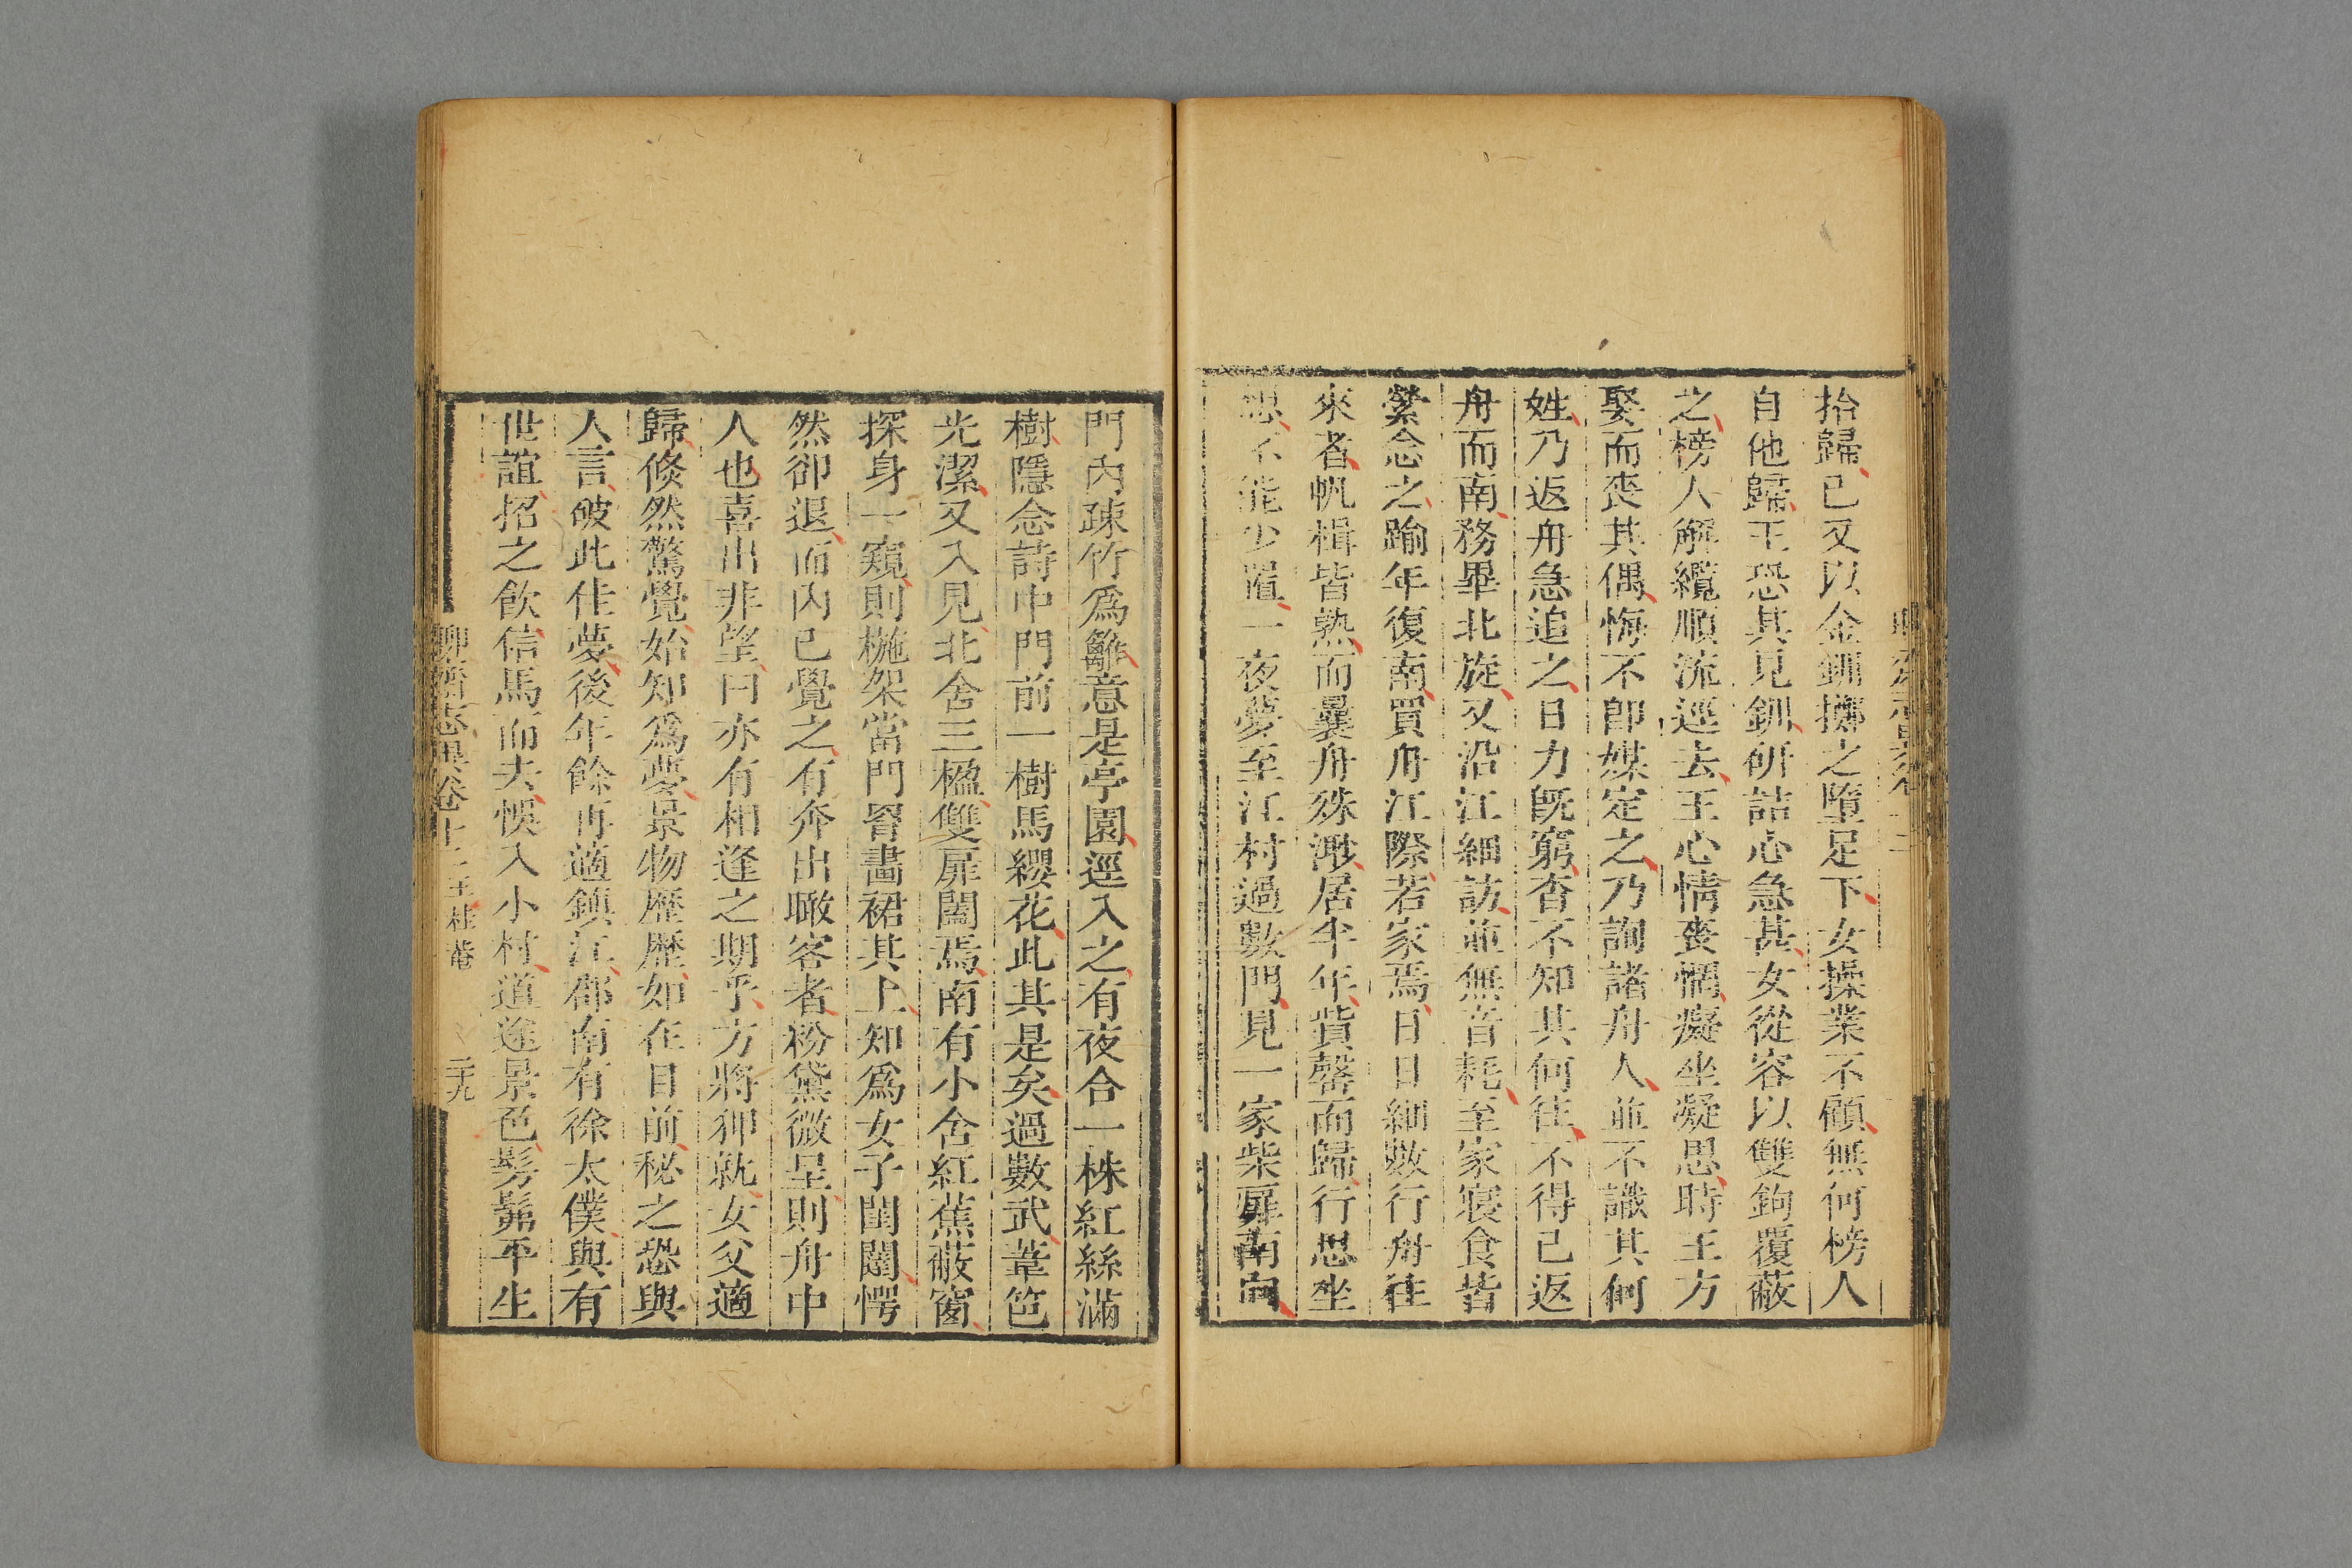 抬歸已又以金釧擲之墮足下女操業不顧無何榜人
自他歸王恐其見釧研詰心急甚女從容以雙鉤覆蔽
之榜人解纜順流逕去王心情喪惘癡坐凝思時王方
娶而喪其偶悔不卽媒定之乃詢諸舟人並不識其何
姓乃返舟急追之日力旣窮杳不知其何徃不得已返
舟而南務畢北旋又沿江細訪並無音耗至家寢食皆
縈念之踰年復南買舟江際若家焉日日細數行舟徃
來者帆楫皆熟而曩舟殊渺居半年貲罄而歸行思坐
想不能少置一夜夢至江村過數門見一家柴扉南向
門內疎竹爲籬意是亭園逕入之有夜合一株紅絲滿
樹隱念詩中門前一樹馬纓花此其是矣過數武葦笆
光潔又入見北舍三楹雙扉闔焉南有小舍紅蕉蔽窗
探身一窺則椸架當門罥畫裙其上知爲女子閨闥愕
然卻退而內已覺之有奔出瞰客者粉黛微呈則舟中
人也喜出非望曰亦有相逢之期乎方將狎就女父適
歸倏然驚覺始知爲夢景物歷歷如在目前秘之恐與
人言破此佳夢後年餘再適鎮江郡南有徐太僕與有
世誼招之飲信馬而去悞入小村道途景色髣髴平生
聊齋志異卷十二 王桂菴 二十九